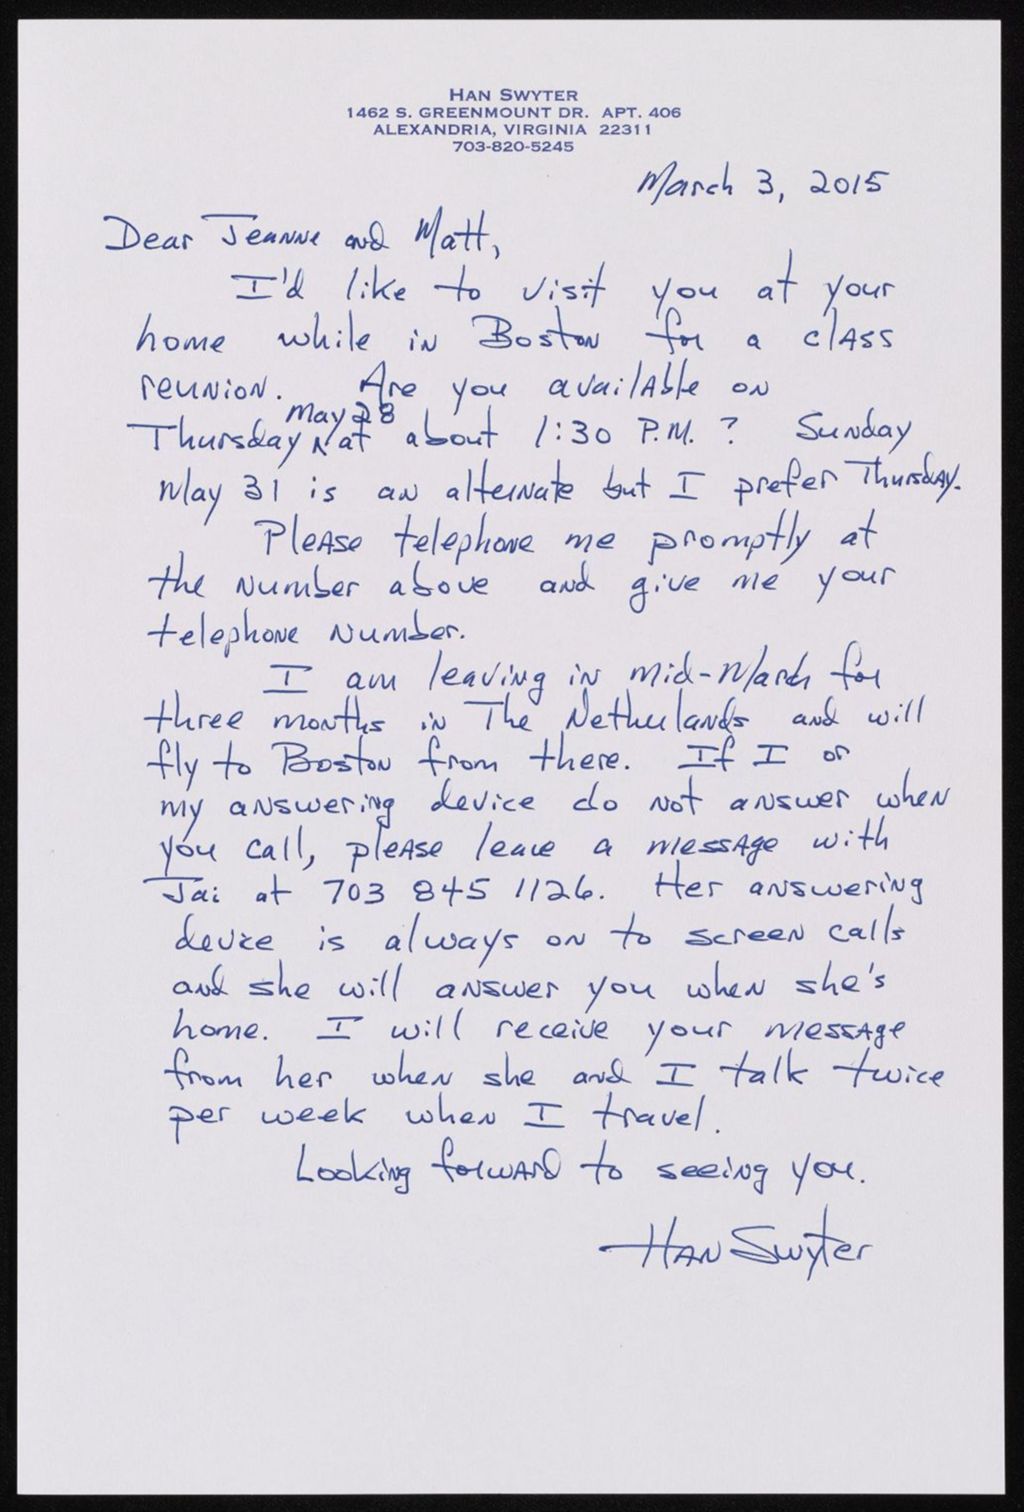 HAN SWYTER
1462 S. GREENMOUNT DR. APT. 406
ALEXANDRIA, VIRGINIA 22311
703-820-5245
March 3, 2015
Dear Jeanne and Matt,
I'd like to visit you at your
home while in Boston for a class
reunion. Are you available on
Thursday May 28 at about 1:30 P.M.? Sunday
May 31 is an alternate but I prefer Thursday.
Please telephone me promptly at
the number above and give me your
telephone number.
I am leaving in mid-March for
three months in The Netherlands and will
fly to Boston from there. If I or
my answering device do not answer when
you call, please leave a message with
Jai at 703 845 1126. Her answering
device is always on to screen calls
and she will answer you when she's
home. I will receive your message
from her when she and I talk twice
per week when I travel.
Looking forward to seeing you.
Han Swyter